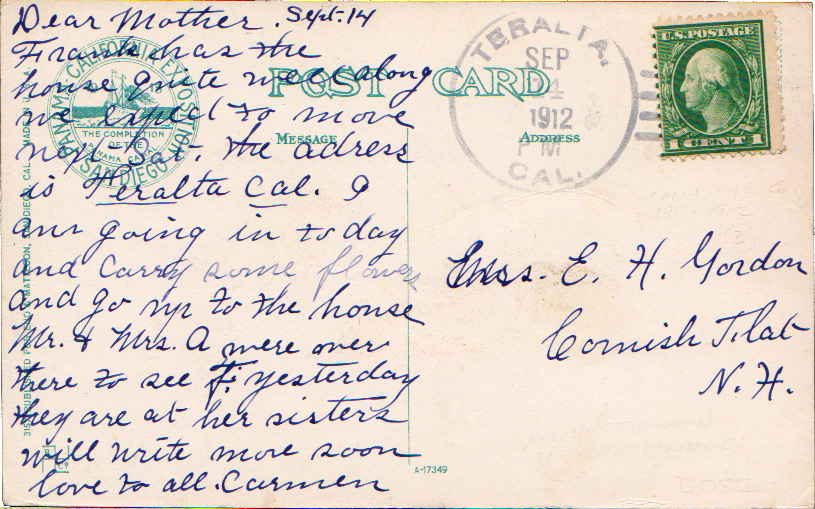 Dear Mother. Sept. 14
Frank has the
house quite well along
we expect to move
next Sat. the adress
is Teralta Cal. I
am going in to day
and carry some flowers
and go up to the house
Mr. & Mrs. A were over
there to see F. yesterday
they are at her sisters
will write more soon
love to all. Carmen
POST CARD
MESSAGE
ADDRESS
PANAMA-CALIFORNIA EXPOSITION
SAN DIEGO
THE COMPLETION
OF THE
PANAMA CANAL
TERALTA.
SEP
14
1912
P M
CAL.
U.S. POSTAGE
1 CENT 1
Mrs. E. H. Gordon
Cornish Flat
N. H.
A-17349